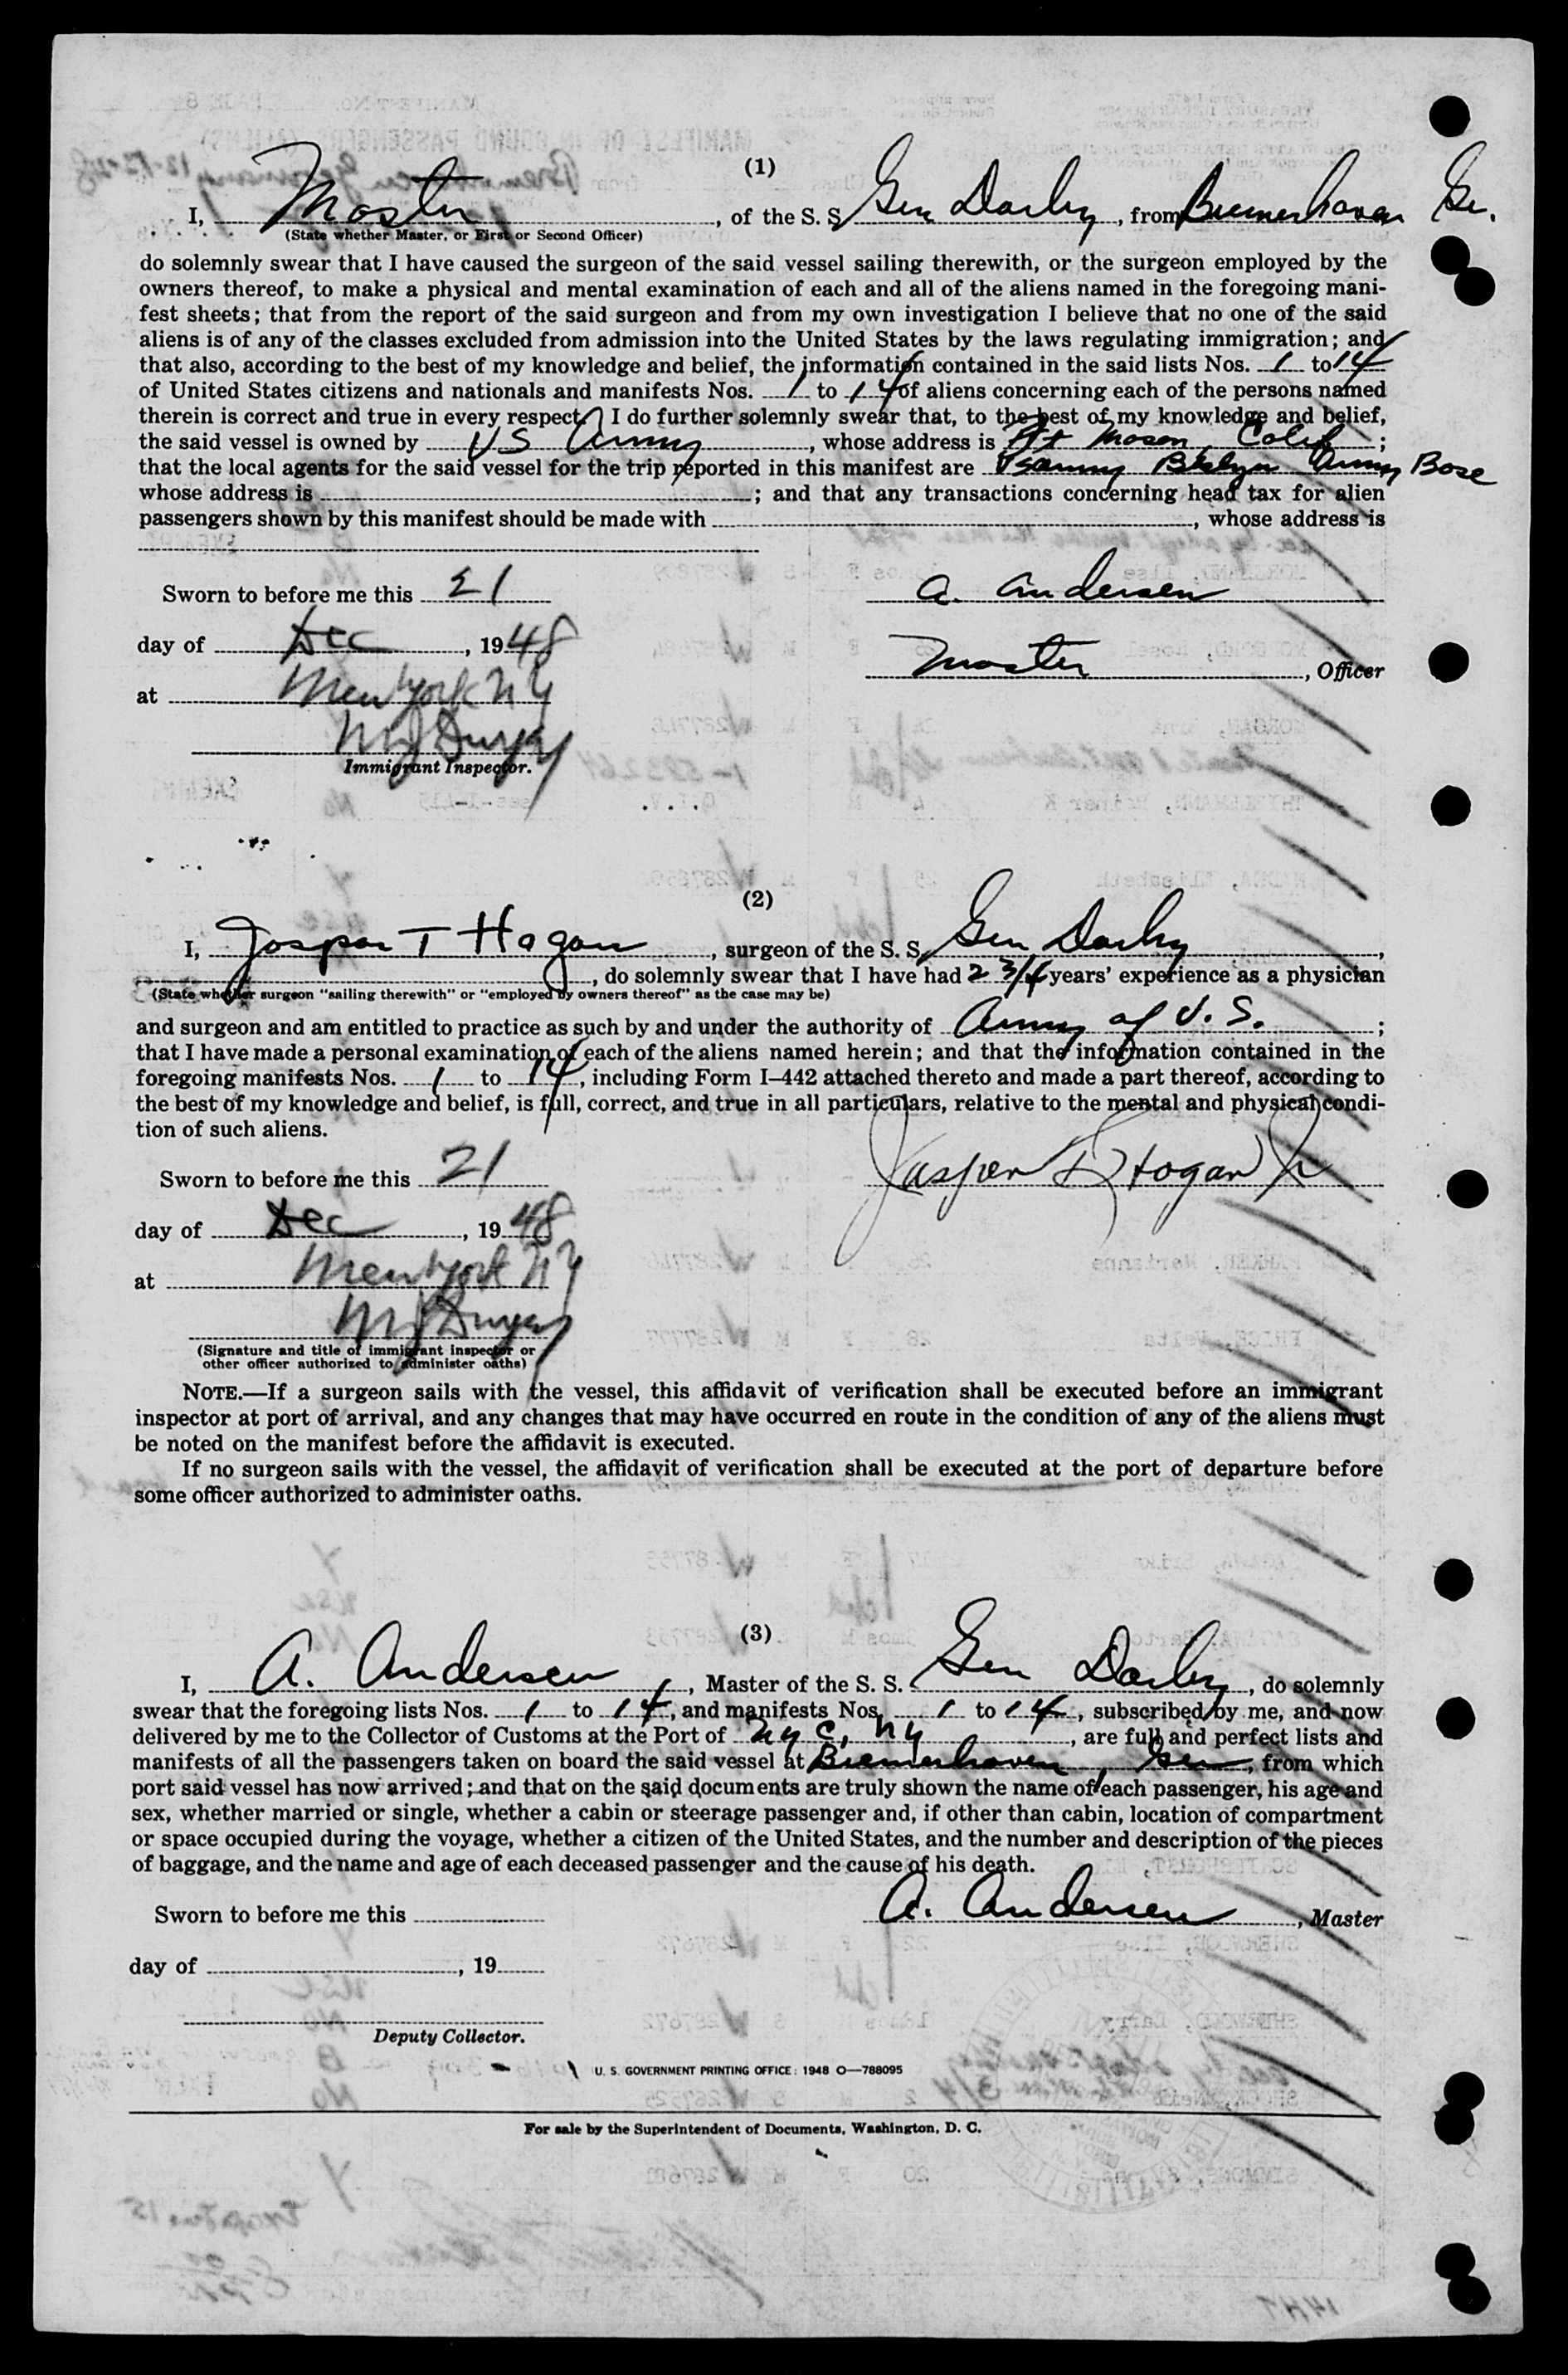 (1)
I, Master, of the S. S. Gen Darby, from Bremerhaven Ge.
(State whether Master, or First or Second Officer)
do solemnly swear that I have caused the surgeon of the said vessel sailing therewith, or the surgeon employed by the
owners thereof, to make a physical and mental examination of each and all of the aliens named in the foregoing mani-
fest sheets; that from the report of the said surgeon and from my own investigation I believe that no one of the said
aliens is of any of the classes excluded from admission into the United States by the laws regulating immigration; and
that also, according to the best of my knowledge and belief, the information contained in the said lists Nos. 1 to 14
of United States citizens and nationals and manifests Nos. 1 to 14 of aliens concerning each of the persons named
therein is correct and true in every respect. I do further solemnly swear that, to the best of my knowledge and belief,
the said vessel is owned by US Army, whose address is Ft Mason, Calif;
that the local agents for the said vessel for the trip reported in this manifest are Army Base
whose address is ; and that any transactions concerning head tax for alien
passengers shown by this manifest should be made with , whose address is
Sworn to before me this 21
A. Andersen
day of Dec, 1948
Master, Officer
at New York NY
Immigrant Inspector.
(2)
I, Jaspar T Hogan, surgeon of the S. S. Gen Darby,
, do solemnly swear that I have had 2 3/4 years' experience as a physician
(State whether surgeon "sailing therewith" or "employed by owners thereof" as the case may be)
and surgeon and am entitled to practice as such by and under the authority of Army of U. S.;
that I have made a personal examination of each of the aliens named herein; and that the information contained in the
foregoing manifests Nos. 1 to 14, including Form I–442 attached thereto and made a part thereof, according to
the best of my knowledge and belief, is full, correct, and true in all particulars, relative to the mental and physical condi-
tion of such aliens.
Sworn to before me this 21
Jasper T Hogan Jr
day of Dec, 1948
at New York NY
(Signature and title of immigrant inspector or
other officer authorized to administer oaths)
NOTE.—If a surgeon sails with the vessel, this affidavit of verification shall be executed before an immigrant
inspector at port of arrival, and any changes that may have occurred en route in the condition of any of the aliens must
be noted on the manifest before the affidavit is executed.
If no surgeon sails with the vessel, the affidavit of verification shall be executed at the port of departure before
some officer authorized to administer oaths.
(3)
I, A. Andersen, Master of the S. S. Gen Darby, do solemnly
swear that the foregoing lists Nos. 1 to 14, and manifests Nos. 1 to 14, subscribed by me, and now
delivered by me to the Collector of Customs at the Port of NYC, NY, are full and perfect lists and
manifests of all the passengers taken on board the said vessel at Bremerhaven, Ger, from which
port said vessel has now arrived; and that on the said documents are truly shown the name of each passenger, his age and
sex, whether married or single, whether a cabin or steerage passenger and, if other than cabin, location of compartment
or space occupied during the voyage, whether a citizen of the United States, and the number and description of the pieces
of baggage, and the name and age of each deceased passenger and the cause of his death.
A. Andersen, Master
Sworn to before me this
day of , 19
Deputy Collector.
U. S. GOVERNMENT PRINTING OFFICE: 1948 O—788095
For sale by the Superintendent of Documents, Washington, D. C.